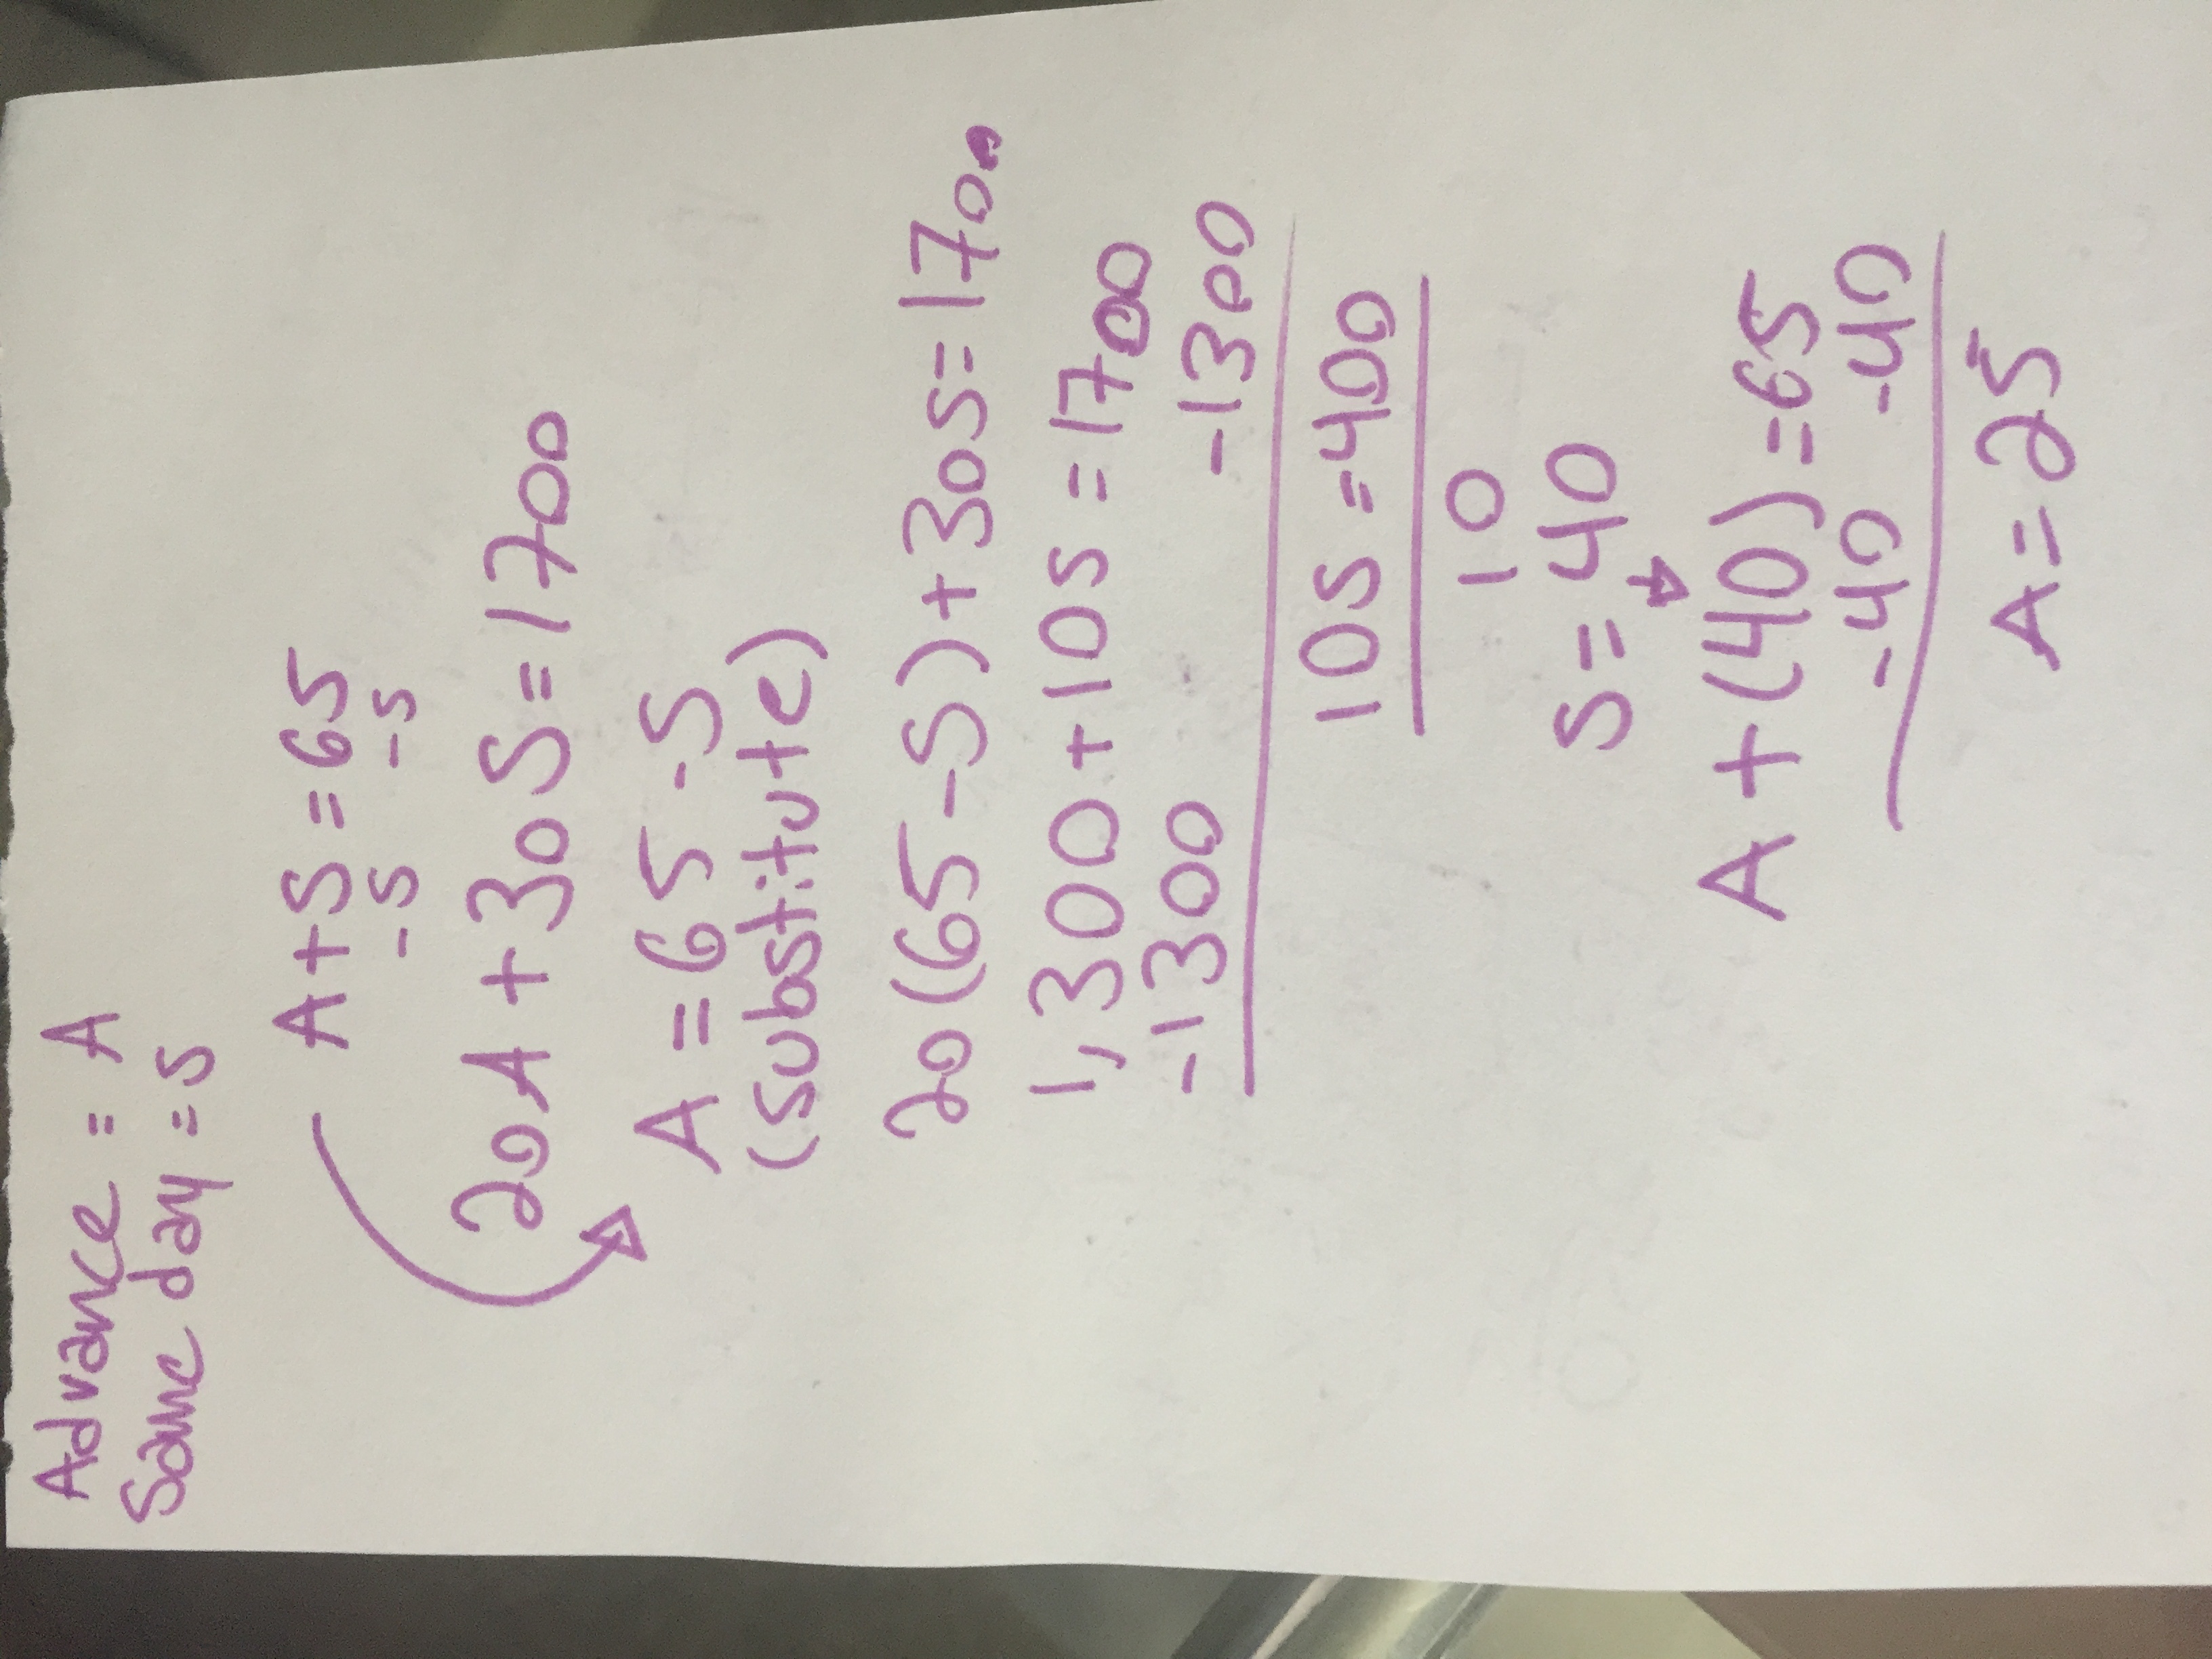 Advance = A
Same day = S
A+S=65
-S -S
20A+30S=1700
A=65-S
(substitute)
20(65-S)+30S=1700
1,300+10S=1700
-1300 -1300
10S=400
10
S=40
A+(40)=65
-40 -40
A=25